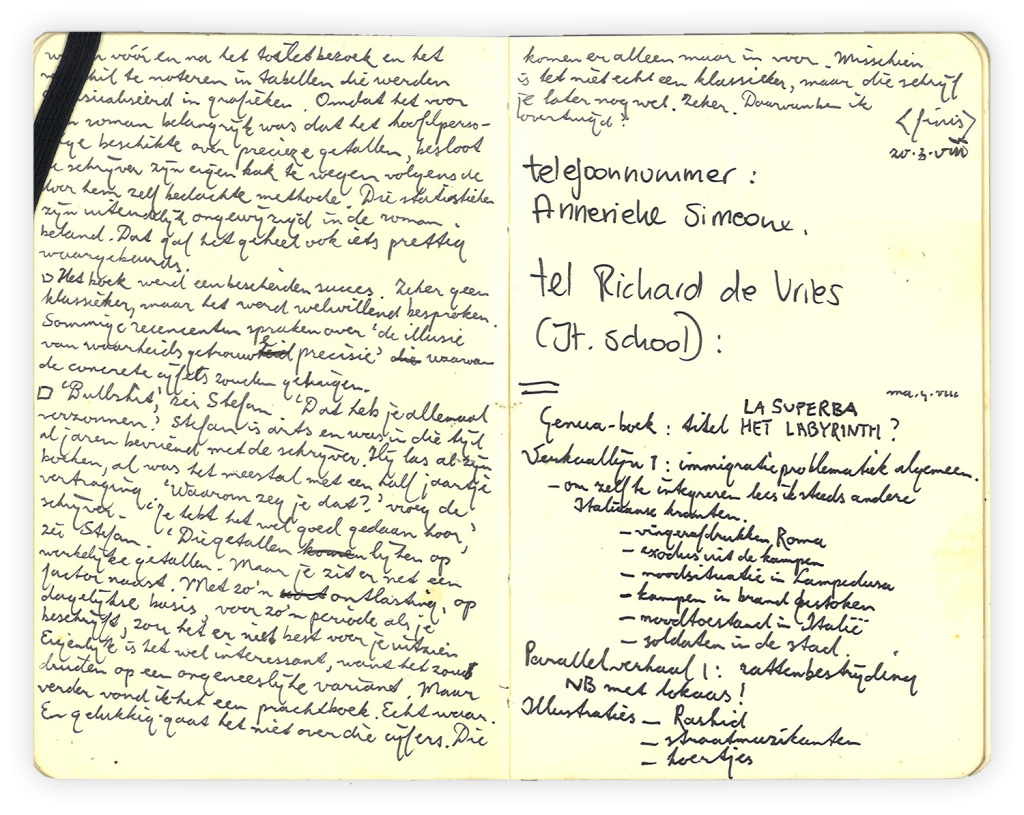 vóór en na het toiletbezoek en het
te noteren in tabellen die werden
in grafieken. Omdat het voor
roman belangrijk was dat het hoofdperso-
beschikte over precieze getallen, besloot
schrijver zijn eigen kak te wegen volgens de
door hem zelf bedachte methode. Die statistieken
zijn uiteindelijk ongewijzigd in de roman
beland. Dat gaf het geheel ook iets prettig
waargebeurds.
□ Het boek werd een bescheiden succes. Zeker geen
klassieker, maar het werd welwillend besproken.
Sommige recensenten spraken over 'de illusie
van waarheidsgetrouwe precisie' die waarvan
de concrete cijfers zouden getuigen.
□ 'Bullshit,' zei Stefan. 'Dat heb je allemaal
verzonnen.' Stefan is arts en was in die tijd
al jaren bevriend met de schrijver. Hij las al zijn
boeken, al was het meestal met een half jaartje
vertraging. 'Waarom zeg je dat?' vroeg de
schrijver. 'Je hebt het wel goed gedaan hoor,'
zei Stefan. 'Die getallen komen lijken op
werkelijke getallen. Maar je zit er net een
factor naast. Met zo'n ontlasting, op
dagelijkse basis, voor zo'n periode als je
beschrijft, zou het er niet best voor je uitzien
Eigenlijk is het wel interessant, want het zou
duiden op een ongeneeslijke variant. Maar
verder vond ik het een prachtboek. Echt waar.
En gelukkig gaat het niet over die cijfers. Die
komen er alleen maar in voor. Misschien
is het niet echt een klassieker, maar die schrijf
je later nog wel. Zeker. Daarvan ben ik
overtuigd.'
<finis>
20.3.VIII
telefoonnummer :
Annerieke Simeone.
tel Richard de Vries
(It. School) :
ma.4.VIII
LA SUPERBA
Genua-boek : titel HET LABYRINTH ?
Verhaallijn 1 : immigratieproblematiek algemeen.
– om zelf te integreren lees ik steeds andere
Italiaanse kranten.
– vingerafdrukken Roma
– exodus uit de kampen
– noodsituatie in Lampedusa
– kampen in brand gestoken
– noodtoestand in Italië
– soldaten in de stad.
Parallelverhaal 1 : rattenbestrijding
NB met lokaas!
Illustraties – Rashid
– straatmuzikanten
– hoertjes